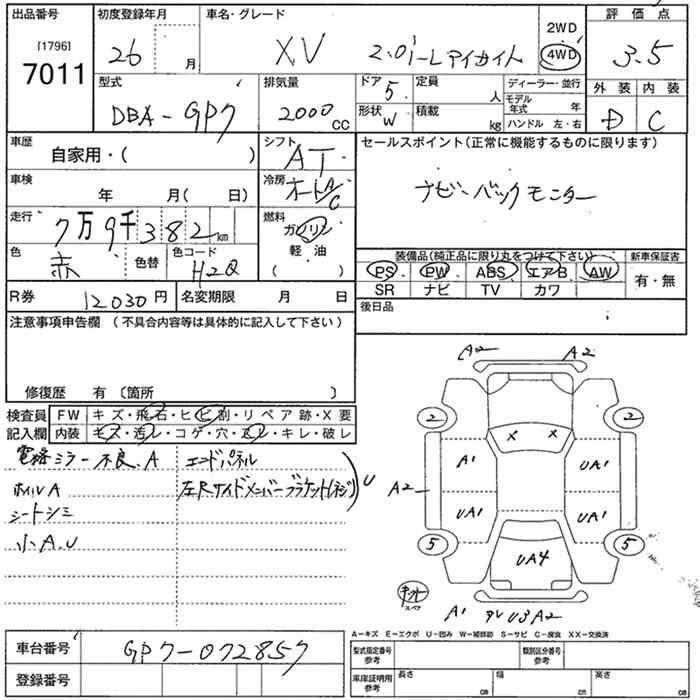 出品番号
[1796]
7011
初度登録年月
26
月
車名・グレード
XV 2.0i-Lアイサイト
2WD
4WD
評価点
3.5
外装 内装
D C
型式
DBA-GP7
排気量
2000 CC
ドア 5
形状 W
定員 人
積載 kg
ディーラー・並行
モデル年式 年
ハンドル 左・右
車歴
自家用・( )
シフト
AT
セールスポイント(正常に機能するものに限ります)
ナビ・バックモニター
車検
年 月( 日)
冷房
オートA/C
走行
7万9千382km
燃料
ガソリン
軽・油
( )
色
赤
色替
色コード
H2Q
装備品(純正品に限り丸をつけて下さい)
PS PW ABS エアB AW
SR ナビ TV カワ
新車保証書
有・無
R券 12030円
名変期限 月 日
後日品
注意事項申告欄(不具合内容等は具体的に記入して下さい)
修復歴 有〔箇所 〕
検査員記入欄
FW キズ・飛石・ヒビ割・リペア跡・X要
内装 キズ・汚レ・コゲ・穴・スレ・キレ・破レ
電格ミラー不良.A
ホイルA
シートシミ
小A.U
エンドパネル
左Rサイドメンバーブラケット(ネジ) U
A2 A2
2 2
X X
A1 UA1
A2
UA1 UA1
5 5
UA4
キット
スペア
A1 U3 A2
A-キズ E-エクボ U-凹み W-補修跡 S-サビ C-腐食 XX-交換済
車台番号 GP7-072857
登録番号
型式指定番号
参考
類別区分番号
参考
車庫証明用
参考
長さ cm
幅 cm
高さ cm